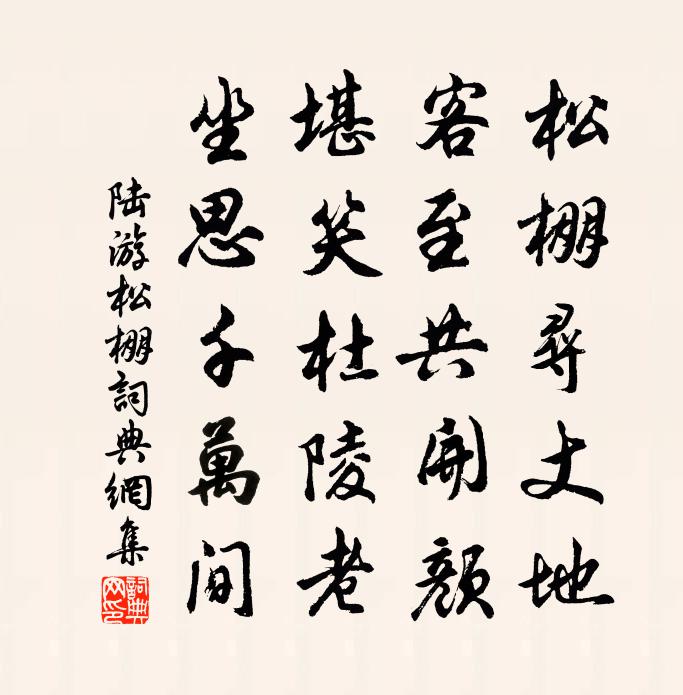 松棚尋丈地
客至共開顏
堪笑杜陵老
坐思千萬间
陆游松棚詞典網集
詞典网印